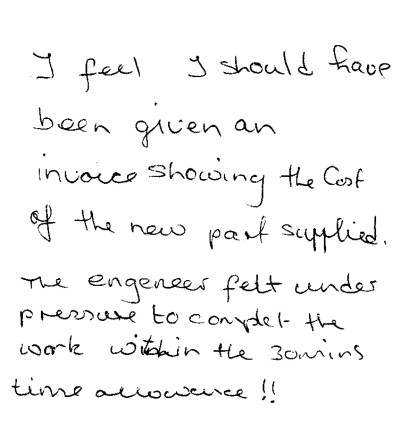 I feel I should have
been given an
invoice showing the Cost
of the new part supplied.
The engeneer felt under
pressure to complet the
work within the 30mins
time allowence !!